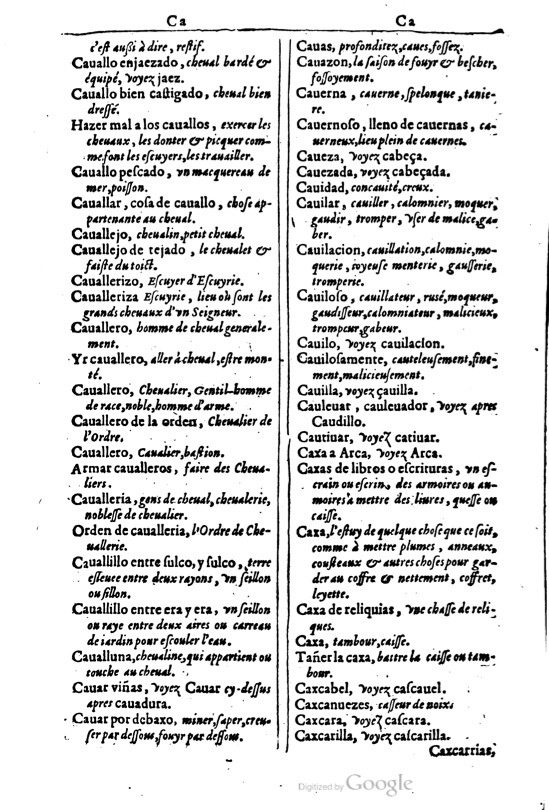 Ca
c'est außi à dire, restif.
Cauallo enjaezado, cheual bardé &
équipé, voyez jaez.
Cauallo bien castigado, cheual bien
dressé.
Hazer mal a los cauallos, exercer les
cheuaux, les donter & picquer com-
me font les escuyers, les trauailler.
Cauallo pescado, vn macquereau de
mer, poisson.
Cauallar, cosa de cauallo, chose ap-
partenante au cheual.
Cauallejo, cheualin, petit cheual.
Cauallejo de tejado, le cheualet &
faiste du toict.
Cauallerizo, Escuyer d'Escuyrie.
Caualleriza Escuyrie, lieu où sont les
grands cheuaux d'vn Seigneur.
Cauallero, homme de cheual generale-
ment.
Yr cauallero, aller à cheual, estre mon-
té.
Cauallero, Cheualier, Gentil-homme
de race, noble, homme d'arme.
Cauallero de la orden, Cheualier de
l'Ordre.
Cauallero, Caualier, bastion.
Armar caualleros, faire des Cheua-
liers.
Caualleria, gens de cheual, cheualerie,
noblesse de cheualier.
Orden de caualleria, l'Ordre de Che-
uallerie.
Cauallillo entre sulco, y sulco, terre
esleuee entre deux rayons, vn seillon
ou sillon.
Cauallillo entre era y era, vn seillon
ou raye entre deux aires ou carreau
de iardin pour escouler l'eau.
Caualluna, cheualine, qui appartient ou
touche au cheual.
Cauar viñas, voyez Cauar cy-dessus
apres cauadura.
Cauar por debaxo, miner, saper, creu-
ser par dessous, fouyr par dessous.
Ca
Cauas, profonditez, caues, fossez.
Cauazon, la saison de fouyr & bescher,
fossoyement.
Cauerna, cauerne, spelonque, tanie-
re.
Cauernoso, lleno de cauernas, ca-
uerneux, lieu plein de cauernes.
Caueza, voyez cabeça.
Cauezada, voyez cabeçada.
Cauidad, concauité, creux.
Cauilar, cauiller, calomnier, moquer,
gaudir, tromper, vser de malice, ga-
ber.
Cauilacion, cauillation, calomnie, mo-
querie, ioyeuse menterie, gausserie,
tromperie.
Cauiloso, cauillateur, rusé, moqueur,
gaudisseur, calomniateur, malicieux,
trompeur, gabeur.
Cauilo, voyez cauilacion.
Cauilosamente, cauteleusement, fine-
ment, malicieusement.
Cauilla, voyez çauilla.
Cauleuar, cauleuador, voyez apres
Caudillo.
Cautiuar, voyez catiuar.
Caxa a Arca, voyez Arca.
Caxas de libros o escrituras, vn es-
crain ou escrin, des armoires ou au-
moires à mettre des liures, quesse ou
caisse.
Caxa, l'estuy de quelque chose que ce soit,
comme à mettre plumes, anneaux,
cousteaux & autres choses pour gar-
der au coffre & nettement, coffret,
leyette.
Caxa de reliquias, vne chasse de reli-
ques.
Caxa, tambour, caisse.
Tañer la caxa, battre la caisse ou tam-
bour.
Caxcabel, voyez cascauel.
Caxcanuezes, casseur de noix.
Caxcara, voyez cascara.
Caxcarilla, voyez cascarilla.
Caxcarrias,
Digitized by Google